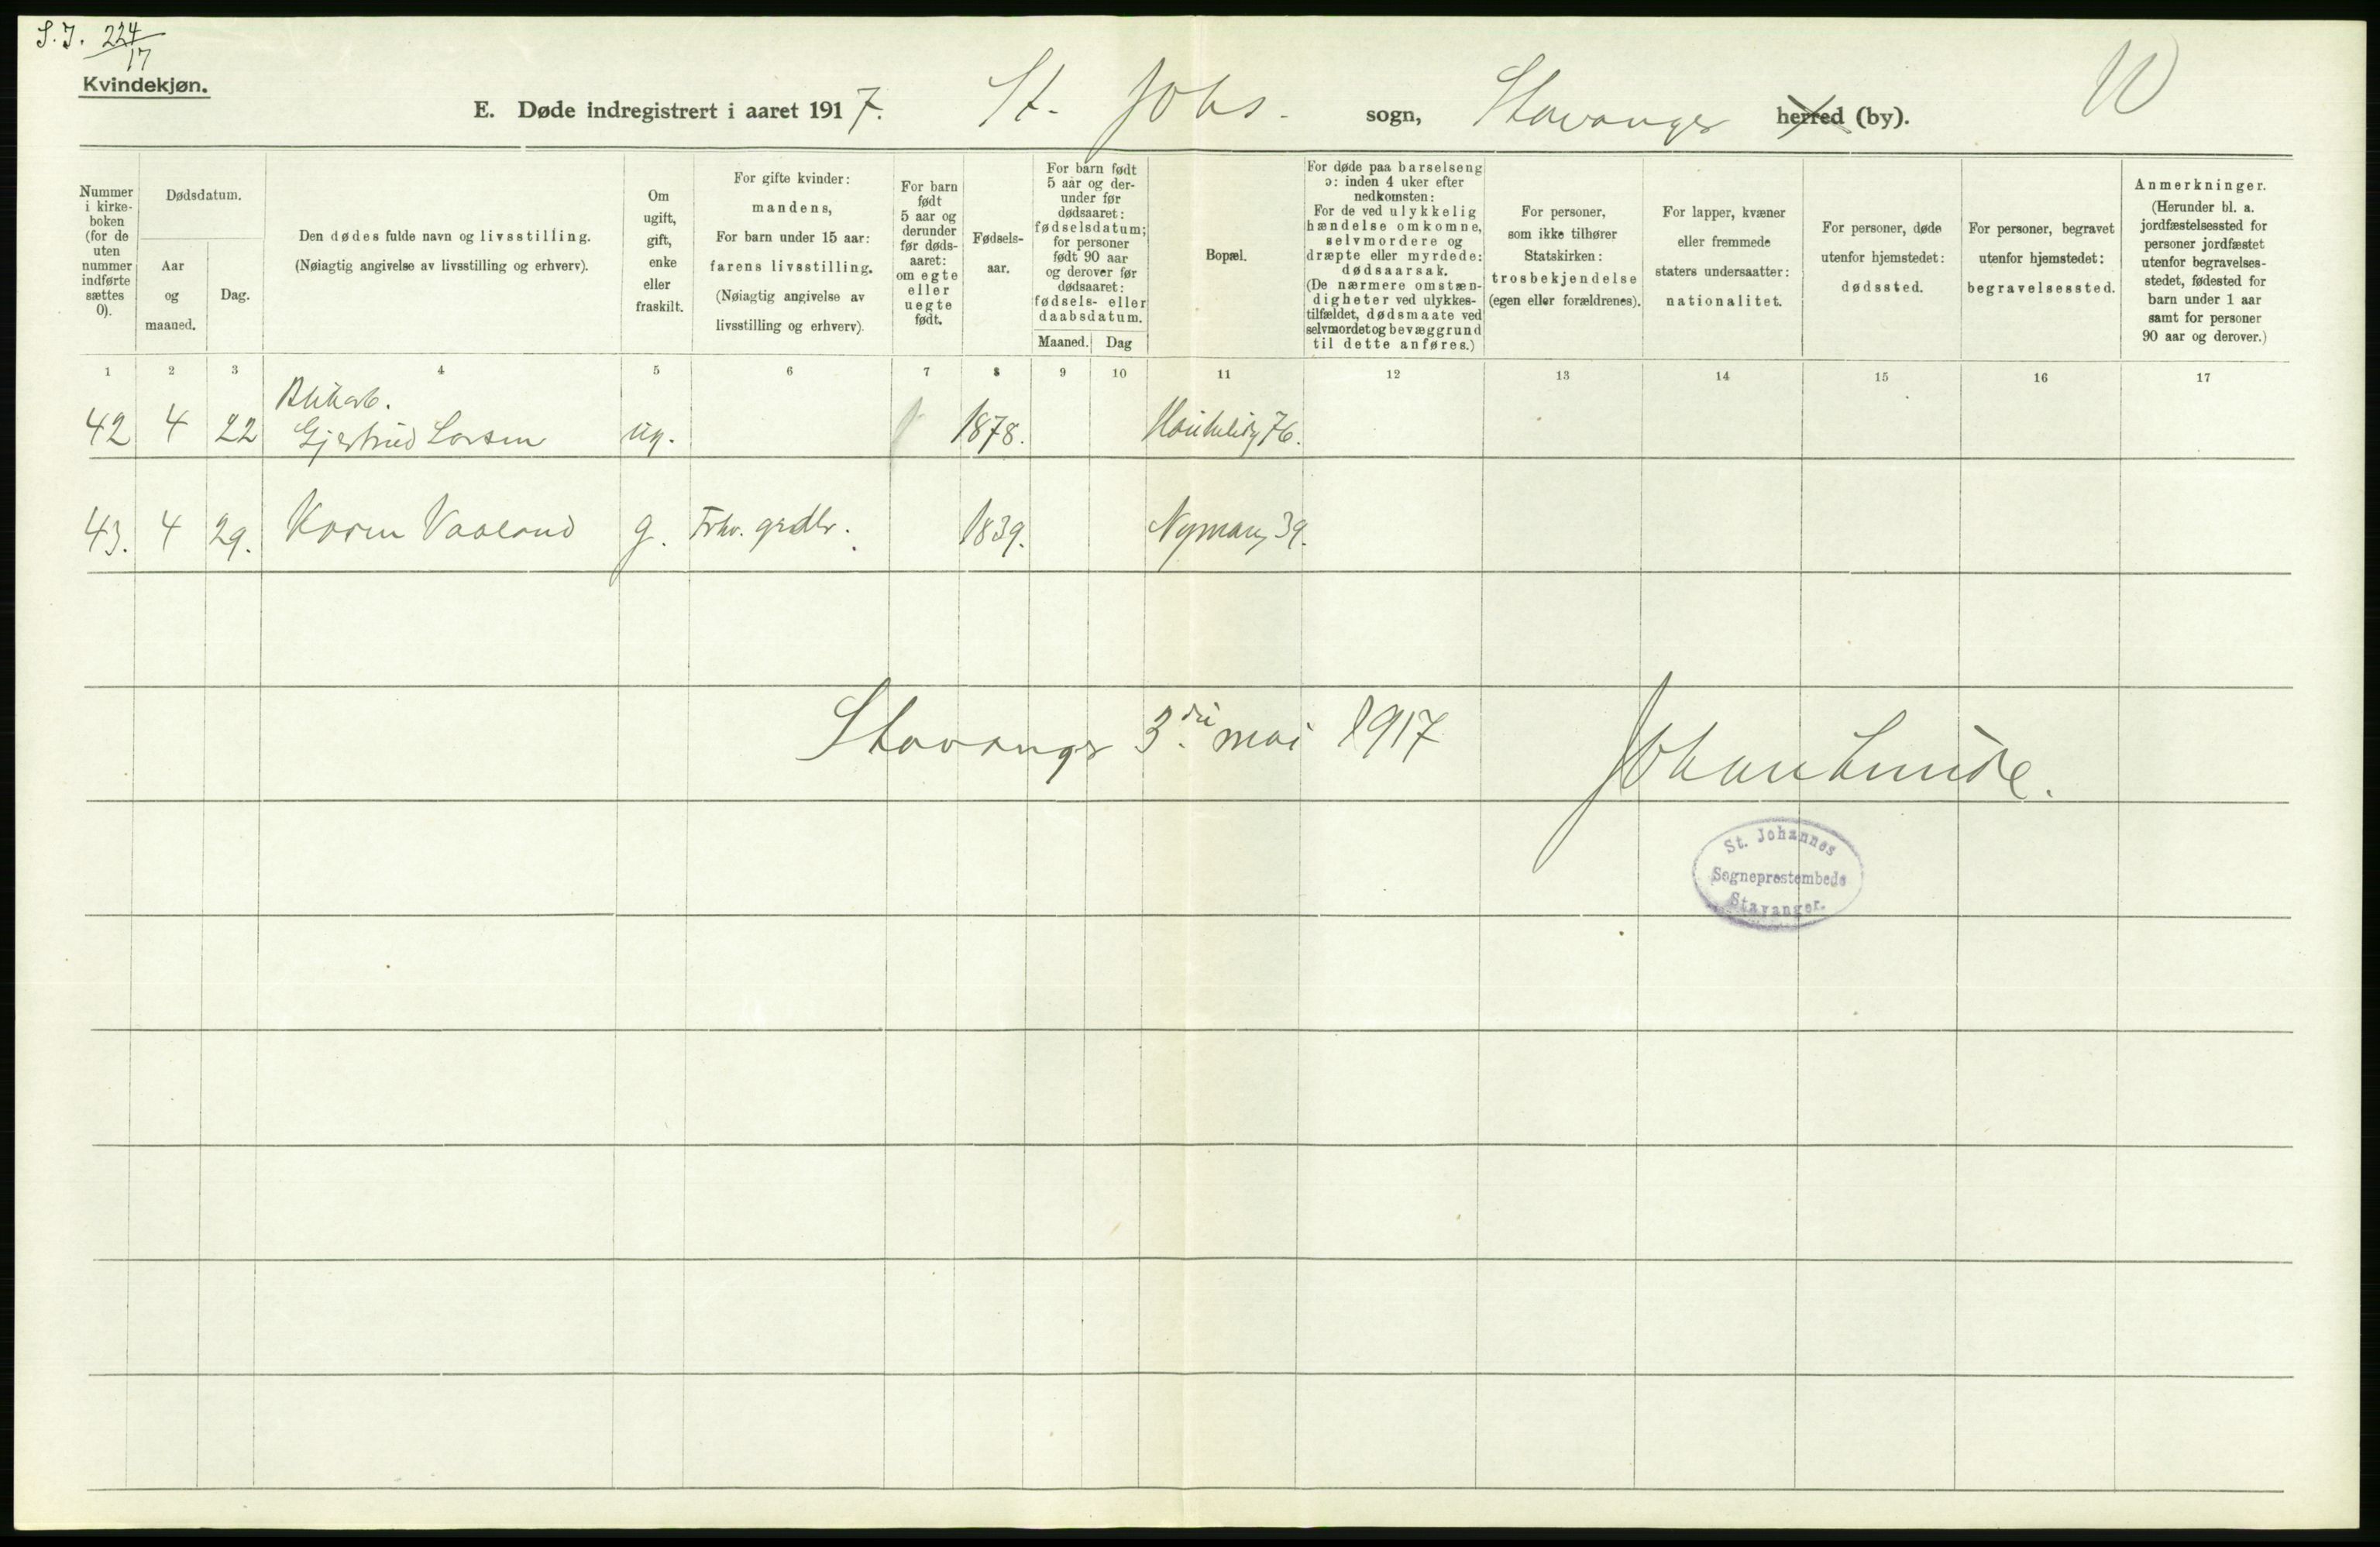 S. J. 224/17
Kvindekjøn.
E. Døde indregistrert i aaret 1917. St. Johs. sogn, Stavanger herred (by).
Nummer i kirkeboken (for de uten nummer indførte sættes 0).
Dødsdatum.
Aar og maaned.
Dag.
Den dødes fulde navn og livsstilling.
(Nøiagtig angivelse av livsstilling og erhverv).
Om ugift, gift, enke eller fraskilt.
For gifte kvinder:
mandens,
For barn under 15 aar:
farens livsstilling.
(Nøiagtig angivelse av
livsstilling og erhverv).
For barn født 5 aar og derunder før dødsaaret: om egte eller uegte født.
Fødselsaar.
For barn født 5 aar og derunder før dødsaaret: fødselsdatum; for personer født 90 aar og derover før dødsaaret: fødsels- eller daabsdatum.
Maaned. Dag
Bopæl.
For døde paa barselseng
ɔ: inden 4 uker efter
nedkomsten:
For de ved ulykkelig
hændelse omkomne,
selvmordere og
dræpte eller myrdede:
dødsaarsak.
(De nærmere omstæn-
digheter ved ulykkes-
tilfældet, dødsmaate ved
selvmordet og bevæggrund
til dette anføres.)
For personer,
som ikke tilhører
Statskirken:
trosbekjendelse
(egen eller forældrenes).
For lapper, kvæner
eller fremmede
staters undersaatter:
nationalitet.
For personer, døde
utenfor hjemstedet:
dødssted.
For personer, begravet
utenfor hjemstedet:
begravelsessted.
Anmerkninger.
(Herunder bl. a.
jordfæstelsessted for
personer jordfæstet
utenfor begravelses-
stedet, fødested for
barn under 1 aar
samt for personer
90 aar og derover.)
1 2 3 4 5 6 7 8 9 10 11 12 13 14 15 16 17
42 4 22 Gjertrud Larsen ug. 1878. 76.
43. 4 29. Karen Vaaland g. Frhv. grdbr. 1839. Nymansg 39.
Stavanger 3die mai 1917
Johan Lunde.
St. Johannes
Sogneprestembede
Stavanger.